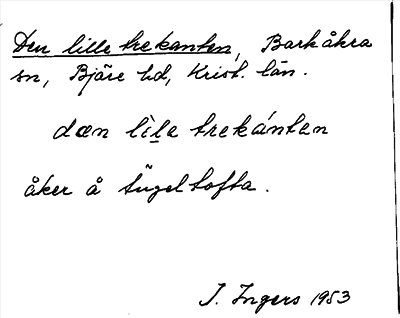 Den lille trekanten, Barkåkra
sn, Bjäre hd, Krist. län.
dæn lìle trekánten
åker å tũgeltofta.
I. Ingers 1953